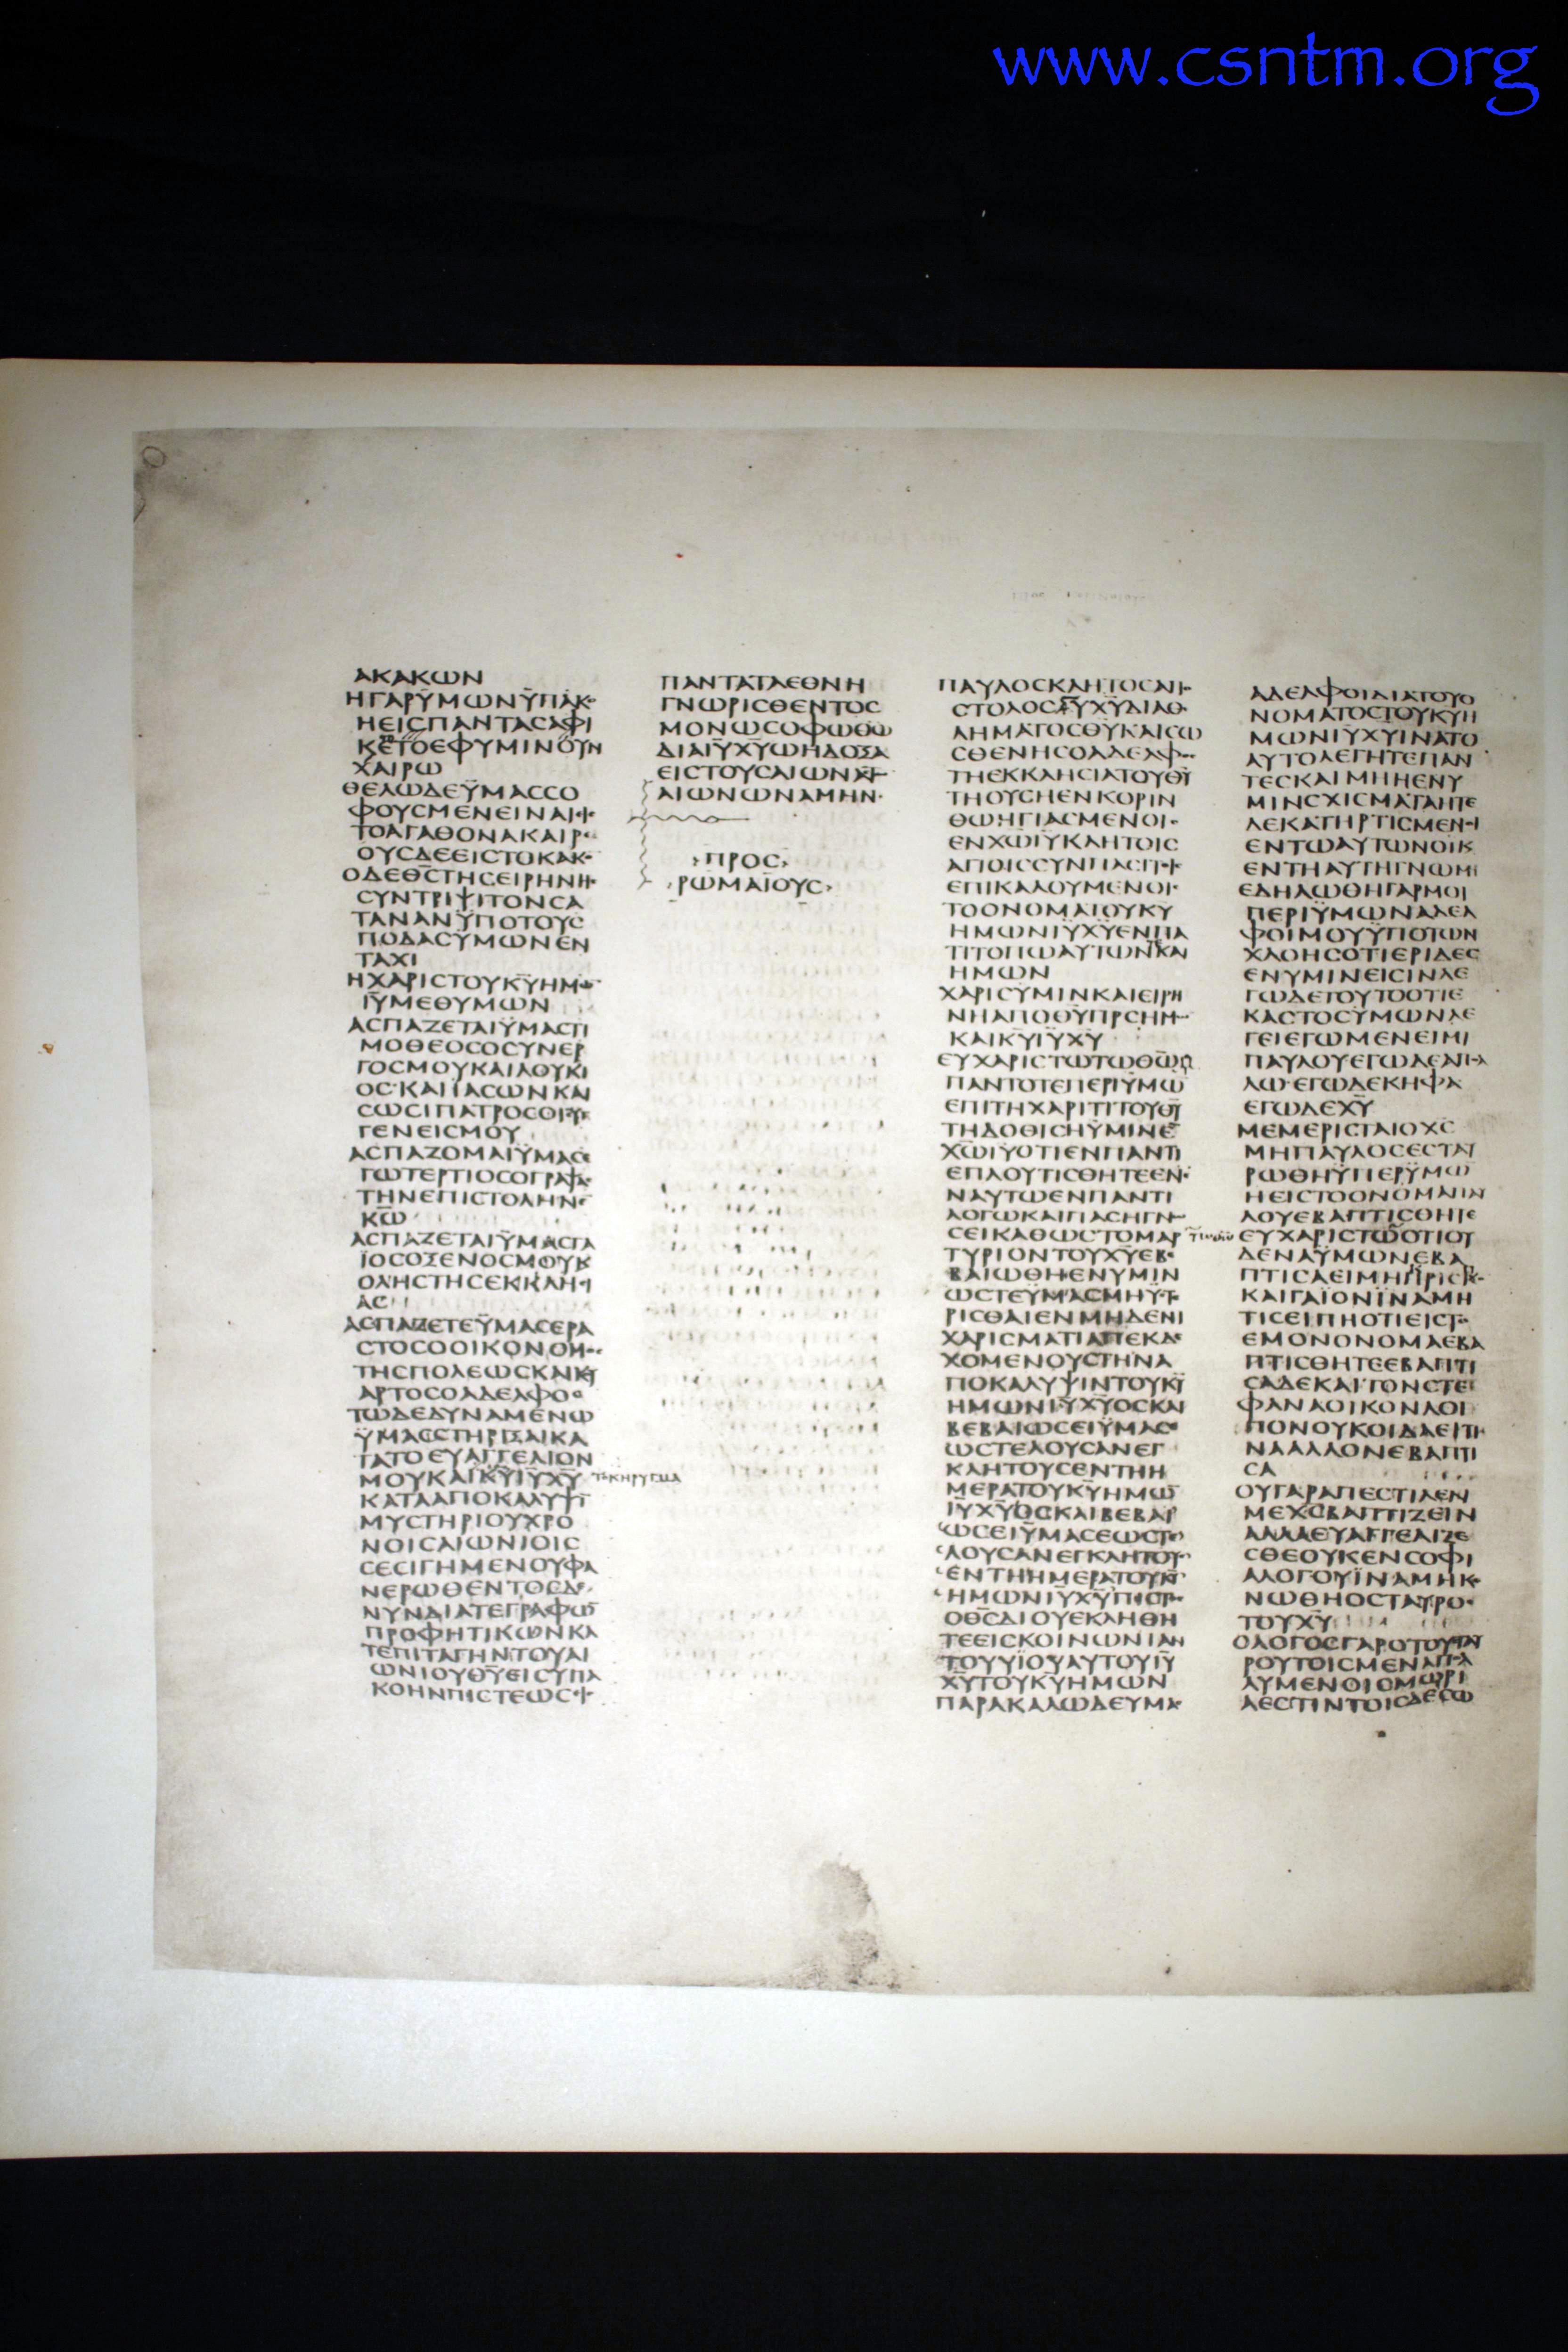 www.csntm.org
ΑΚΑΚΩΝ
ΗΓΑΡΫΜΩΝΫΠΑΚ
ΗΕΙCΠΑΝΤΑCΑΦΙ
ΚΕΤΟΕΦΥΜΙΝΟΥΝ
ΧΑΙΡΩ
ΘΕΛΩΔΕΫΜΑCCΟ
ΦΟΥCΜΕΝΕΙΝΑΙ
ΤΟΑΓΑΘΟΝΑΚΑΙΡ
ΟΥCΔΕΕΙCΤΟΚΑΚ
ΟΔΕΘ̅C̅ΤΗCΕΙΡΗΝΗ
CΥΝΤΡΙΨΙΤΟΝCΑ
ΤΑΝΑΝΫΠΟΤΟΥC
ΠΟΔΑCΫΜΩΝΕΝ
ΤΑΧΙ
ΗΧΑΡΙCΤΟΥΚ̅Υ̅ΗΜ
Ι̅Υ̅ΜΕΘΥΜΩΝ
ΑCΠΑΖΕΤΑΙΫΜΑCΤΙ
ΜΟΘΕΟCΟCΥΝΕΡ
ΓΟCΜΟΥΚΑΙΛΟΥΚΙ
ΟC·ΚΑΙΪΑCΩΝΚΑΙ
CΩCΙΠΑΤΡΟCΟΙCΥ
ΓΕΝΕΙCΜΟΥ
ΑCΠΑΖΟΜΑΙΫΜΑCΕ
ΓΩΤΕΡΤΙΟCΟΓΡΑΨΑ
ΤΗΝΕΠΙCΤΟΛΗΝ
Κ̅Ω̅
ΑCΠΑΖΕΤΑΙΫΜΑCΓΑ
ΪΟCΟΞΕΝΟCΜΟΥΚ
ΟΛΗCΤΗCΕΚΚΛΗCΙ
ΑC
ΑCΠΑΖΕΤΕΫΜΑCΕΡΑ
CΤΟCΟΟΙΚΟΝΟΜ
ΤΗCΠΟΛΕΩCΚΑΙΚΥ
ΑΡΤΟCΟΑΔΕΛΦΟC
ΤΩΔΕΔΥΝΑΜΕΝΩ
ΫΜΑCCΤΗΡΙΞΑΙΚΑ
ΤΑΤΟΕΥΑΓΓΕΛΙΟΝ
ΜΟΥΚΑΙΚ̅Υ̅Ι̅Υ̅Χ̅Υ̅ ΤΟΚΗΡΥΓΜΑ
ΚΑΤΑΑΠΟΚΑΛΥΨΙ
ΜΥCΤΗΡΙΟΥΧΡΟ
ΝΟΙCΑΙΩΝΙΟΙC
CΕCΙΓΗΜΕΝΟΥΦΑ
ΝΕΡΩΘΕΝΤΟCΔΕ
ΝΥΝΔΙΑΤΕΓΡΑΦΩ̅
ΠΡΟΦΗΤΙΚΩΝΚΑ
ΤΕΠΙΤΑΓΗΝΤΟΥΑΙ
ΩΝΙΟΥΘ̅Υ̅ΕΙCΫΠΑ
ΚΟΗΝΠΙCΤΕΩC
ΠΑΝΤΑΤΑΕΘΝΗ
ΓΝΩΡΙCΘΕΝΤΟC
ΜΟΝΩCΟΦΩΘ̅Ω̅
ΔΙΑΙ̅Υ̅Χ̅Υ̅ΩΗΔΟΞΑ
ΕΙCΤΟΥCΑΙΩΝΑC
ΑΙΩΝΩΝΑΜΗΝ·
ΠΡΟC
ΡΩΜΑΙΟΥC
ΠΑΥΛΟCΚΛΗΤΟCΑΠ
CΤΟΛΟCΙ̅Υ̅Χ̅Υ̅ΔΙΑΘ
ΛΗΜΑΤΟCΘ̅Υ̅ΚΑΙCΩ
CΘΕΝΗCΟΑΔΕΛΦ
ΤΗΕΚΚΛΗCΙΑΤΟΥΘ̅Υ̅
ΤΗΟΥCΗΕΝΚΟΡΙΝ
ΘΩΗΓΙΑCΜΕΝΟΙ
ΕΝΧ̅Ω̅Ι̅Υ̅ΚΛΗΤΟΙC
ΑΓΙΟΙCCΥΝΠΑCΙΤ
ΕΠΙΚΑΛΟΥΜΕΝΟΙ
ΤΟΟΝΟΜΑΤΟΥΚ̅Υ̅
ΗΜΩΝΙ̅Υ̅Χ̅Υ̅ΕΝΠΑ
ΤΙΤΟΠΩΑΥΤΩΝΚΑΙ
ΗΜΩΝ
ΧΑΡΙCΫΜΙΝΚΑΙΕΙΡΗ
ΝΗΑΠΟΘ̅Υ̅Π̅Ρ̅C̅ΗΜ
ΚΑΙΚ̅Υ̅Ι̅Υ̅Χ̅Υ̅
ΕΥΧΑΡΙCΤΩΤΩΘ̅Ω̅
ΠΑΝΤΟΤΕΠΕΡΙΫΜΩ̅
ΕΠΙΤΗΧΑΡΙΤΙΤΟΥΘ̅Υ̅
ΤΗΔΟΘΙCΗΫΜΙΝΕ̅
Χ̅Ω̅Ι̅Υ̅ΟΤΙΕΝΠΑΝΤΙ
ΕΠΛΟΥΤΙCΘΗΤΕΕΝ
ΝΑΥΤΩΕΝΠΑΝΤΙ
ΛΟΓΩΚΑΙΠΑCΗΓΝ
CΕΙΚΑΘΩCΤΟΜΑΡ
ΤΥΡΙΟΝΤΟΥΧ̅Υ̅ΕΒ
ΒΑΙΩΘΗΕΝΥΜΙΝ
ΩCΤΕΫΜΑCΜΗΫCΤ
ΡΙCΘΑΙΕΝΜΗΔΕΝΙ
ΧΑΡΙCΜΑΤΙΑΠΕΚΔΕ
ΧΟΜΕΝΟΥCΤΗΝΑ
ΠΟΚΑΛΥΨΙΝΤΟΥΚ̅Υ̅
ΗΜΩΝΙ̅Υ̅Χ̅Υ̅ΟCΚΑΙ
ΒΕΒΑΙΩCΕΙΫΜΑC
ΩCΤΕΛΟΥCΑΝΕΓ
ΚΛΗΤΟΥCΕΝΤΗΗ
ΜΕΡΑΤΟΥΚ̅Υ̅ΗΜΩ̅
Ι̅Υ̅Χ̅Υ̅ΟCΚΑΙΒΕΒΑΙ
ΩCΕΙΫΜΑCΕΩCΤΕ
ΛΟΥCΑΝΕΓΚΛΗΤΟΥ
ΕΝΤΗΗΜΕΡΑΤΟΥΚ̅Υ̅
ΗΜΩΝΙ̅Υ̅Χ̅Υ̅ΠΙCΤ
ΟΘ̅C̅ΔΙΟΥΕΚΛΗΘΗ
ΤΕΕΙCΚΟΙΝΩΝΙΑΝ
ΤΟΥΫΙΟΥΑΥΤΟΥΙ̅Υ̅
Χ̅Υ̅ΤΟΥΚ̅Υ̅ΗΜΩΝ
ΠΑΡΑΚΑΛΩΔΕΥΜΑ
ΑΔΕΛΦΟΙΔΙΑΤΟΥΟ
ΝΟΜΑΤΟCΤΟΥΚ̅Υ̅Η
ΜΩΝΙ̅Υ̅Χ̅Υ̅ΙΝΑΤΟ
ΑΥΤΟΛΕΓΗΤΕΠΑΝ
ΤΕCΚΑΙΜΗΗΕΝΥ
ΜΙΝCΧΙCΜΑΤΑΗΤΕ
ΔΕΚΑΤΗΡΤΙCΜΕΝΟΙ
ΕΝΤΩΑΥΤΩΝΟΙΚ
ΕΝΤΗΑΥΤΗΓΝΩΜΗ
ΕΔΗΛΩΘΗΓΑΡΜΟΙ
ΠΕΡΙΫΜΩΝΑΔΕΛ
ΦΟΙΜΟΥΫΠΟΤΩΝ
ΧΛΟΗCΟΤΙΕΡΙΔΕC
ΕΝΥΜΙΝΕΙCΙΝΛΕ
ΓΩΔΕΤΟΥΤΟΟΤΙΕ
ΚΑCΤΟCΫΜΩΝΛΕ
ΓΕΙΕΓΩΜΕΝΕΙΜΙ
ΠΑΥΛΟΥ·ΕΓΩΔΕΑΠΟ
ΛΩ·ΕΓΩΔΕΚΗΦΑ
ΕΓΩΔΕΧ̅Υ̅
ΜΕΜΕΡΙCΤΑΙΟΧ̅C̅
ΜΗΠΑΥΛΟCΕCΤΑΥ
ΡΩΘΗΫΠΕΡΫΜΩ̅
ΗΕΙCΤΟΟΝΟΜΑΠΑΥ
ΛΟΥΕΒΑΠΤΙCΘΗΤΕ
ΕΥΧΑΡΙCΤΩΟΤΙΟΥ
ΔΕΝΑΫΜΩΝΕΒΑ
ΠΤΙCΑΕΙΜΗΠΡΙCΚ
ΚΑΙΓΑΪΟΝΪΝΑΜΗ
ΤΙCΕΙΠΗΟΤΙΕΙCΤ
ΕΜΟΝΟΝΟΜΑΕΒΑ
ΠΤΙCΘΗΤΕΕΒΑΠΤΙ
CΑΔΕΚΑΙΤΟΝCΤΕ
ΦΑΝΑΟΙΚΟΝΛΟΙ
ΠΟΝΟΥΚΟΙΔΑΕΙΤΙ
ΝΑΑΛΛΟΝΕΒΑΠΤΙ
CΑ
ΟΥΓΑΡΑΠΕCΤΙΛΕΝ
ΜΕΧ̅C̅ΒΑΠΤΙΖΕΙΝ
ΑΛΛΑΕΥΑΓΓΕΛΙΖΕ
CΘΕΟΥΚΕΝCΟΦΙ
ΑΛΟΓΟΥΪΝΑΜΗΚ
ΝΩΘΗΟCΤΑΥΡΟ
ΤΟΥΧ̅Υ̅
ΟΛΟΓΟCΓΑΡΟΤΟΥCΤΑΥ
ΡΟΥΤΟΙCΜΕΝΑΠΟΛ
ΛΥΜΕΝΟΙCΜΩΡΙ
ΑΕCΤΙΝΤΟΙCΔΕCΩ